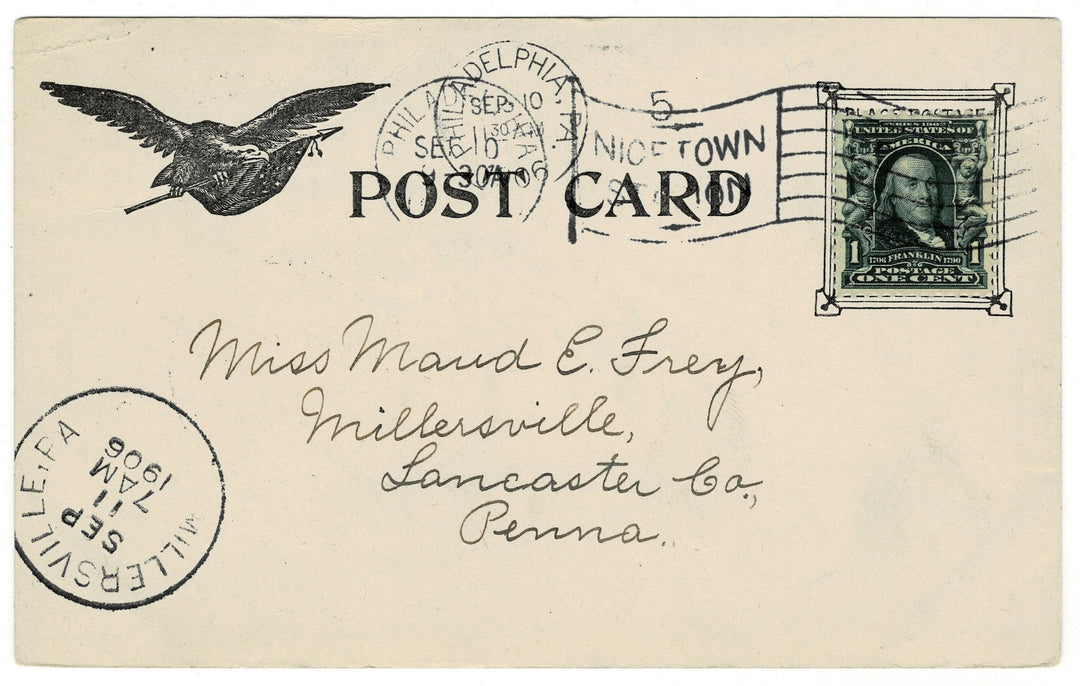 PHILADELPHIA, PA.
SEP. 10
11 30 AM
PHILADELPHIA
SEP 10
5
NICETOWN
STATION
POST CARD
PLACE POSTAGE
UNITED STATES OF
AMERICA
1 1
1706 FRANKLIN 1790
POSTAGE
ONE CENT
Miss Maud E. Frey,
Millersville,
Lancaster Co.,
Penna.
MILLERSVILLE, PA
SEP
11
7 AM
1906